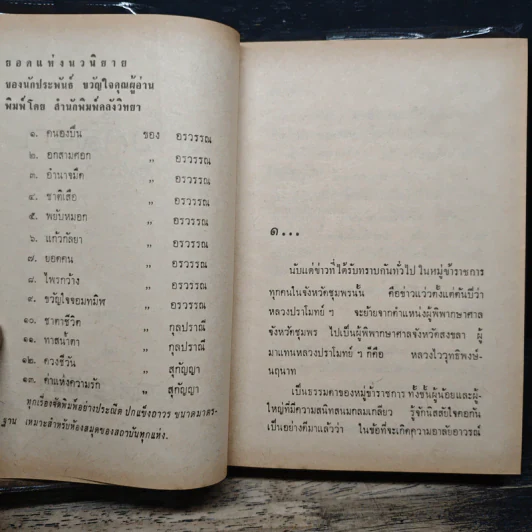 ยอดแห่งนวนิยาย
ของนักประพันธ์ ขวัญใจคุณผู้อ่าน
พิมพ์โดย สำนักพิมพ์คลังวิทยา
๑. คนองปืน ของ อรวรรณ
๒. อกสามศอก ,, อรวรรณ
๓. อำนาจมืด ,, อรวรรณ
๔. ชาติเสือ ,, อรวรรณ
๕. พยับหมอก ,, อรวรรณ
๖. แก้วกัลยา ,, อรวรรณ
๗. ยอดคน ,, อรวรรณ
๘. ไพรกว้าง ,, อรวรรณ
๙. ขวัญใจจอมทมิฬ ,, อรวรรณ
๑๐. ชาตาชีวิต ,, กุลปราณี
๑๑. ทาสน้ำตา ,, กุลปราณี
๑๒. ดวงชีวัน ,, สุกัญญา
๑๓. ค่าแห่งความรัก ,, สุกัญญา
ทุกเรื่องจัดพิมพ์อย่างปราณีต ปกแข็งถาวร ขนาดมาตร-
ฐาน เหมาะสำหรับห้องสมุดของสถาบันทุกแห่ง.
๑...
นับแต่ข่าวที่ได้รับทราบกันทั่วไป ในหมู่ข้าราชการ
ทุกคนในจังหวัดชุมพรนั้น คือข่าวแว่วตั้งแต่ต้นปีว่า
หลวงปราโมทย์ ฯ จะย้ายจากตำแหน่งผู้พิพากษาศาล
จังหวัดชุมพร ไปเป็นผู้พิพากษาศาลจังหวัดสงขลา ผู้
มาแทนหลวงปราโมทย์ ฯ ก็คือ หลวงไววุฒิพงษ์-
นฤนาท
เป็นธรรมดาของหมู่ข้าราชการ ทั้งชั้นผู้น้อยและผู้-
ใหญ่ที่มีความสนิทสนมกลมเกลียว รู้จักนิสสัยใจคอกัน
เป็นอย่างดีมาแล้วว่า ในข้อที่จะเกิดความอาลัยอาวรณ์